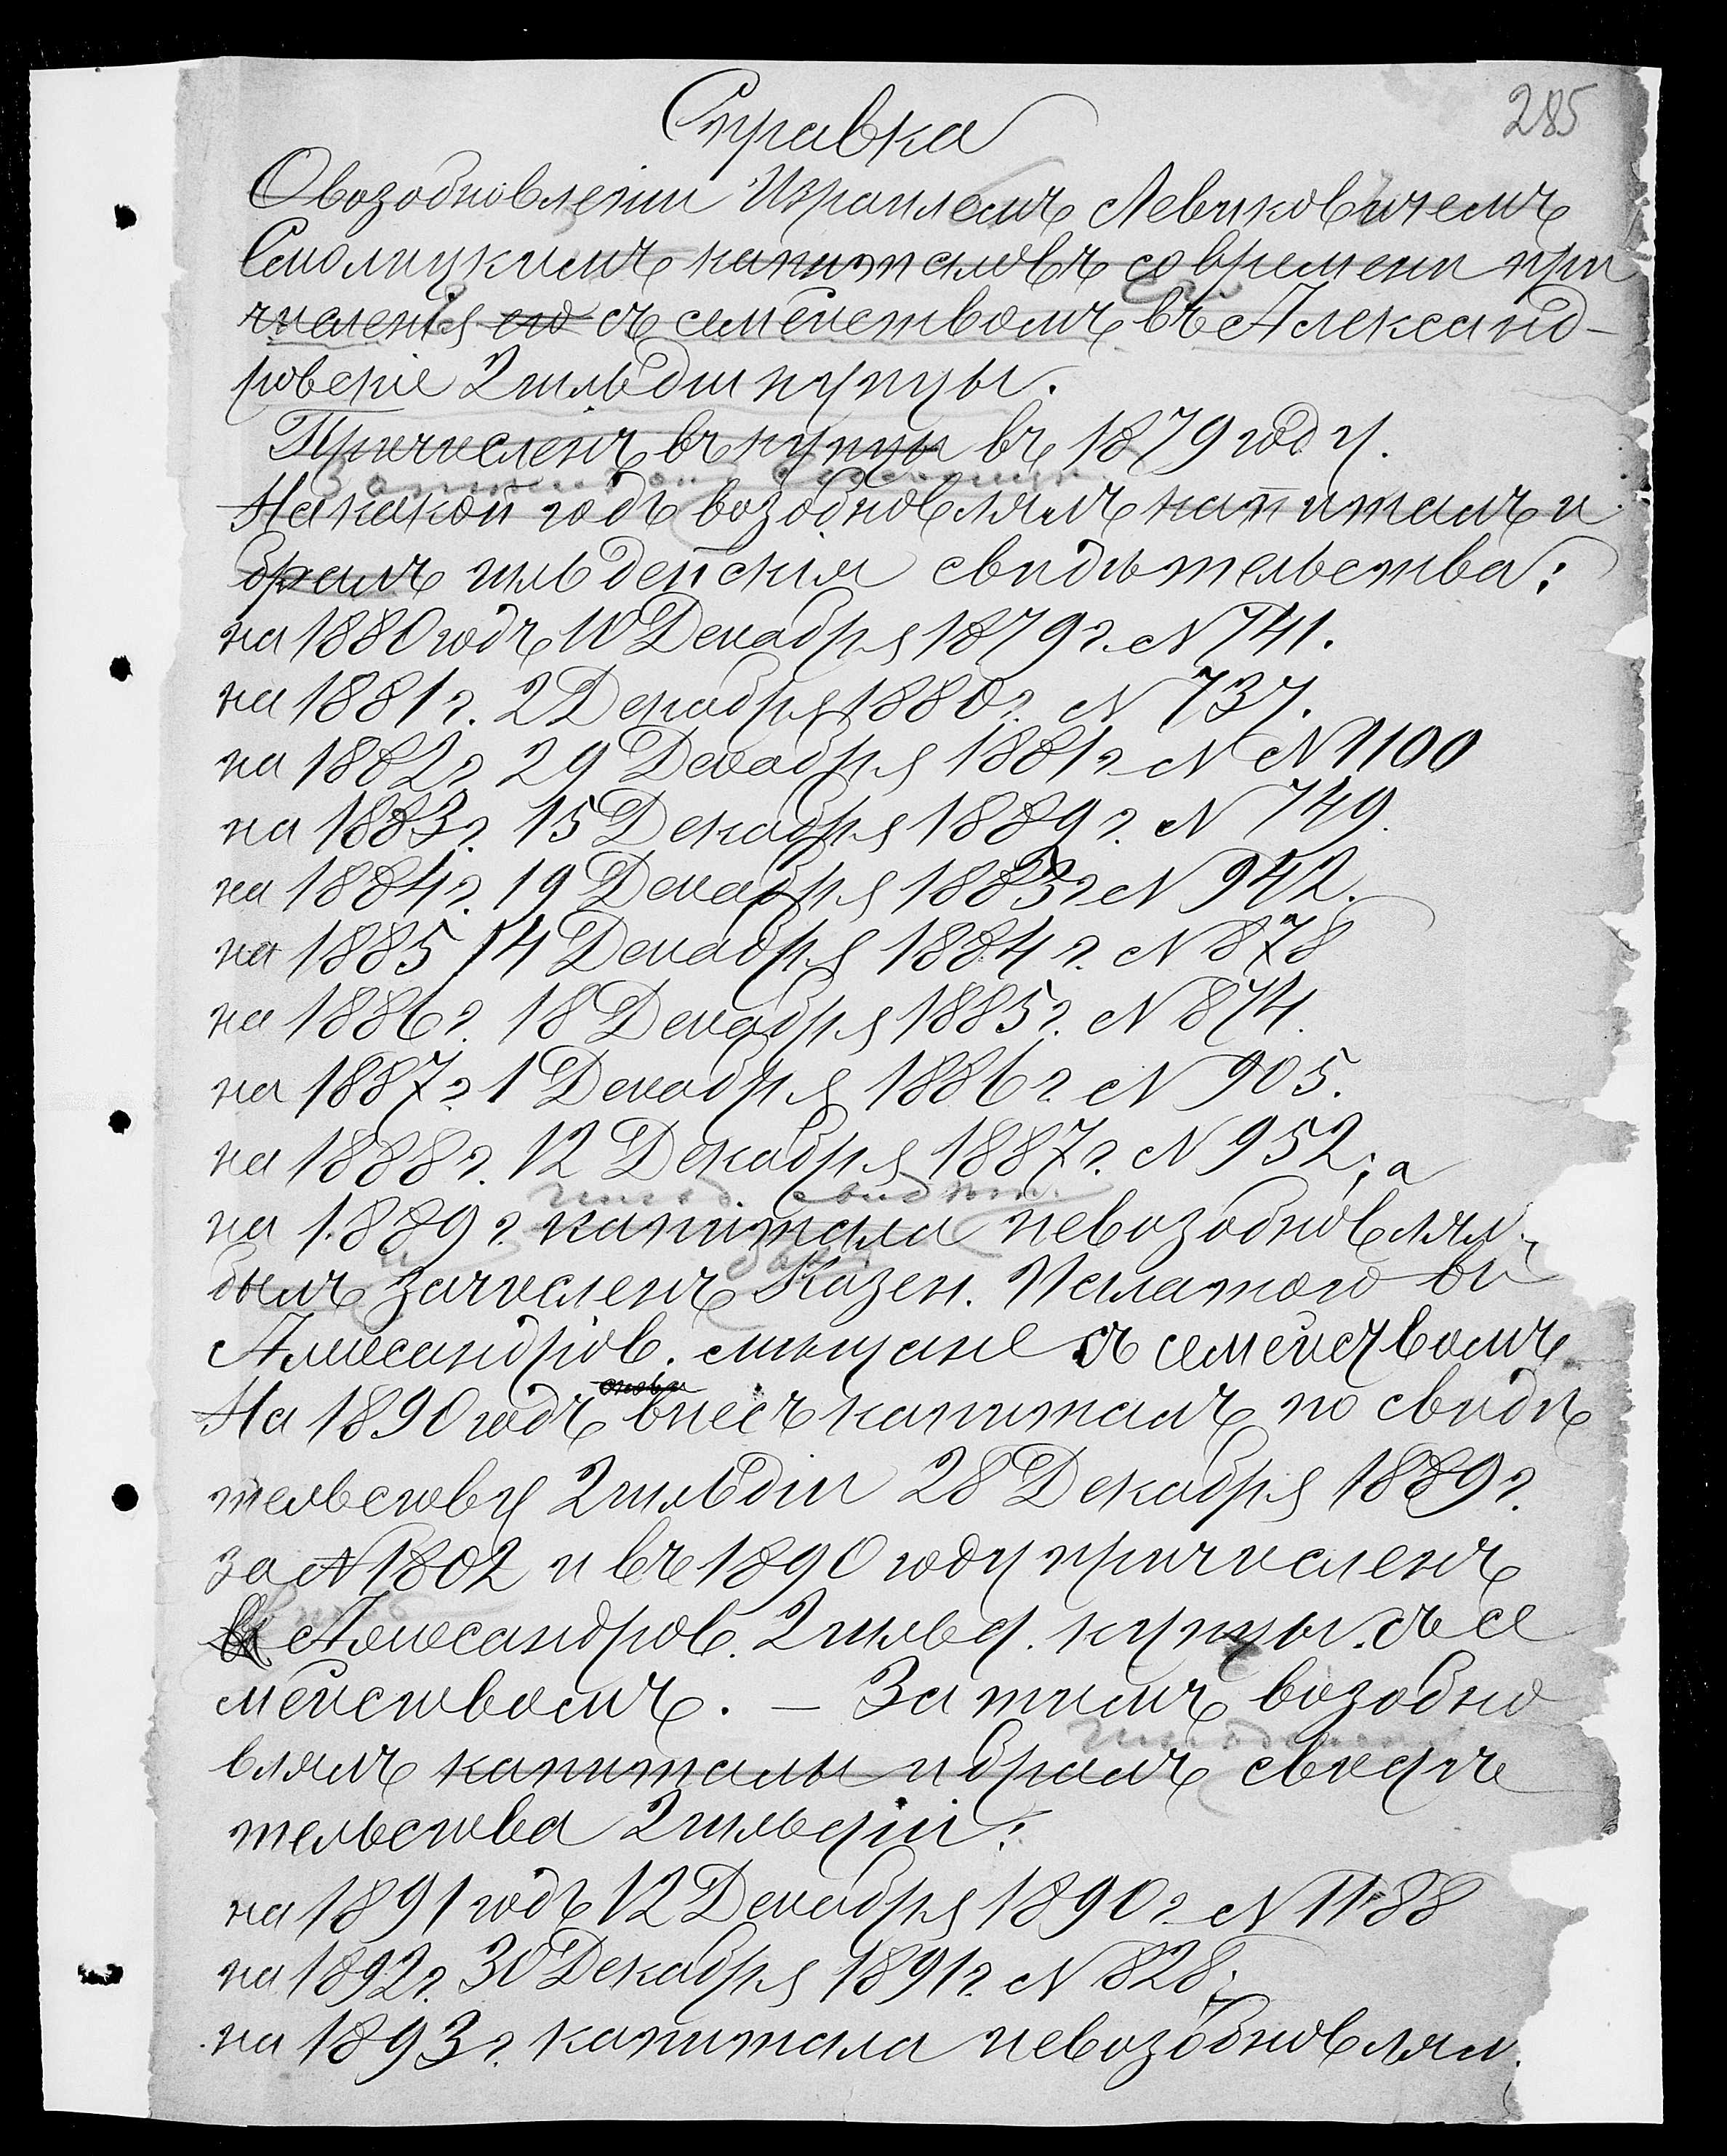 285
Справка
О возобновленіи Израилемъ Левиковичемъ
капиталовъ со времени при
численія его съ семействомъ въ Александ-
ровскіе 2 гильдіи купцы.
Причисленъ въ купцы въ 1879 году.
На какой годъ возобновлялъ капиталъ и
бралъ гильдейскія свидѣтельства:
на 1880 годъ 10 Декабря 1879 г. N 741.
на 1881 г. 2 Декабря 1880 г. N 737.
на 1882 г. 29 Декабря 1881 г. N N 1100
на 1883 г. 15 Декабря 1889 г. N 749.
на 1884 г. 19 Декабря 1883 г. N 942.
на 1885 14 Декабря 1884 г. N 878
на 1886 г. 18 Декабря 1885 г. N 874.
на 1887 г. 1 Декабря 1886 г. N 905.
на 1888 г. 12 Декабря 1887 г. N 952; а
гильд. свидѣт.
на 1889 г. капитала невозобновлял.
былъ зачисленъ Казен. Палатою въ
Александров. мѣщане съ семействомъ.
На 1890 годъ внесъ капиталъ по свидѣ
тельству 2 гильдіи 28 Декабря 1889 г.
за N 1802 и въ 1890 году причисленъ
Александров. 2 гильд. купцы съ се
мействомъ. — Затимъ возобно
влялъ капиталы и бралъ свидѣ
тельства 2 гильдіи:
на 1891 годъ 12 Декабря 1890 г. N 1188
на 1892 г. 30 Декабря 1891 г. N 828;
на 1893 г. капитала невозобновлял.